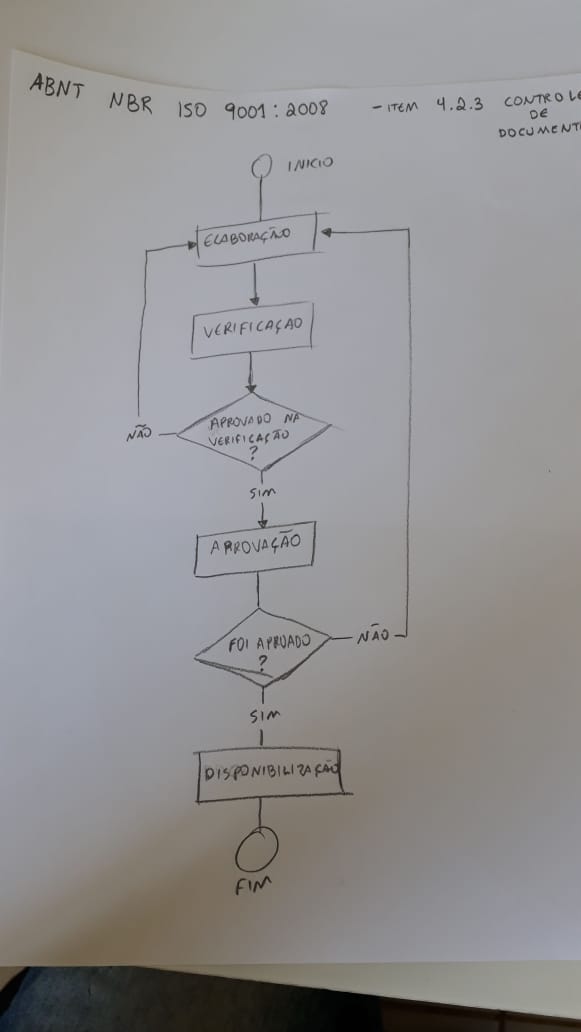 ABNT NBR ISO 9001:2008 - ITEM 4.2.3 CONTROLE
DE
DOCUMENT
INICIO
ELABORAÇÃO
VERIFICAÇAO
APROVADO NA
VERIFICAÇÃO
?
NÃO
SIM
APROVAÇÃO
FOI APROADO
?
NÃO
SIM
DISPONIBILIZAÇÃO
FIM